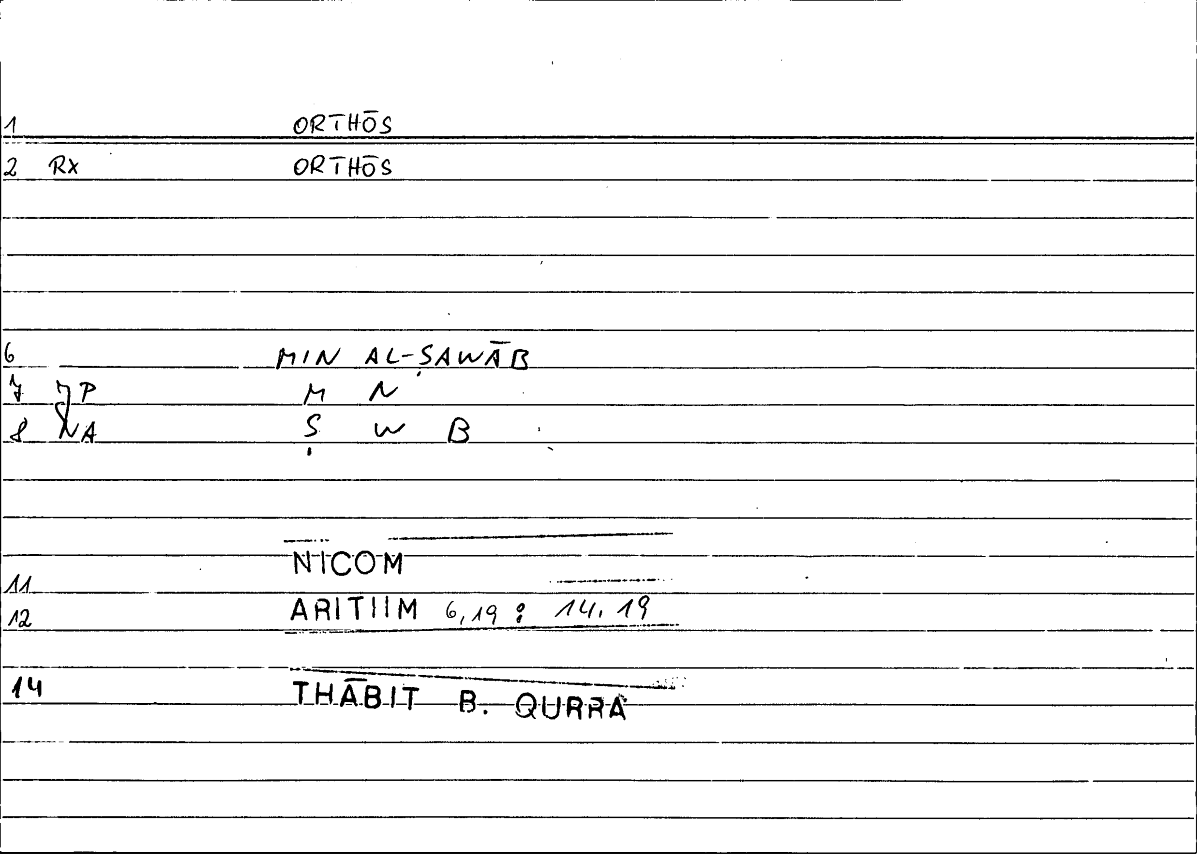 1 ORTHŌS
2 RX ORTHŌS
6 MIN AL-ṢAWĀB
7 JP M N
8 NA Ṣ W B
NICOM
11
12 ARITIIM 6,19 : 14.19
14 THĀBIT B. QURRA